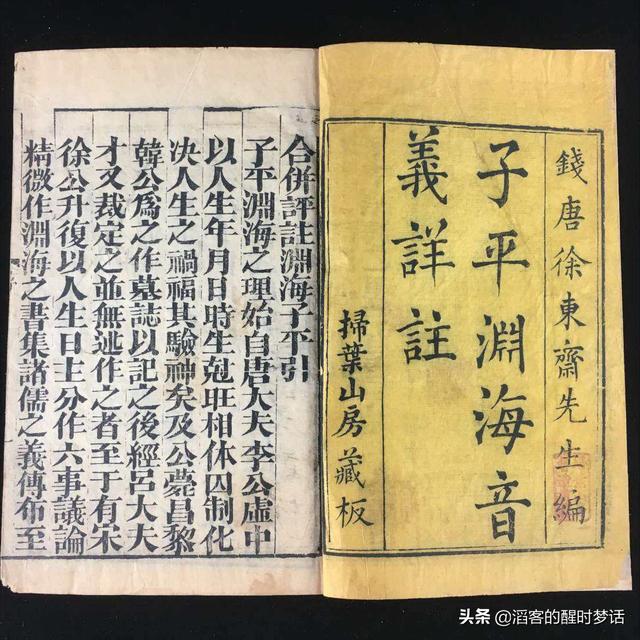 錢唐徐東齋先生編
子平淵海音
義詳註
掃葉山房藏板
合併評註淵海子平引
子平淵海之理始自唐大夫李公虛中
以人生年月日時生剋旺相休囚制化
決人生之禍福其驗神矣及公薨昌黎
韓公爲之作墓誌以記之後經呂大夫
才又裁定之並無述作之者至于有宋
徐公升復以人生日主分作六事議論
精微作淵海之書集諸儒之義傳布至
头条 @滔客的醒时梦话